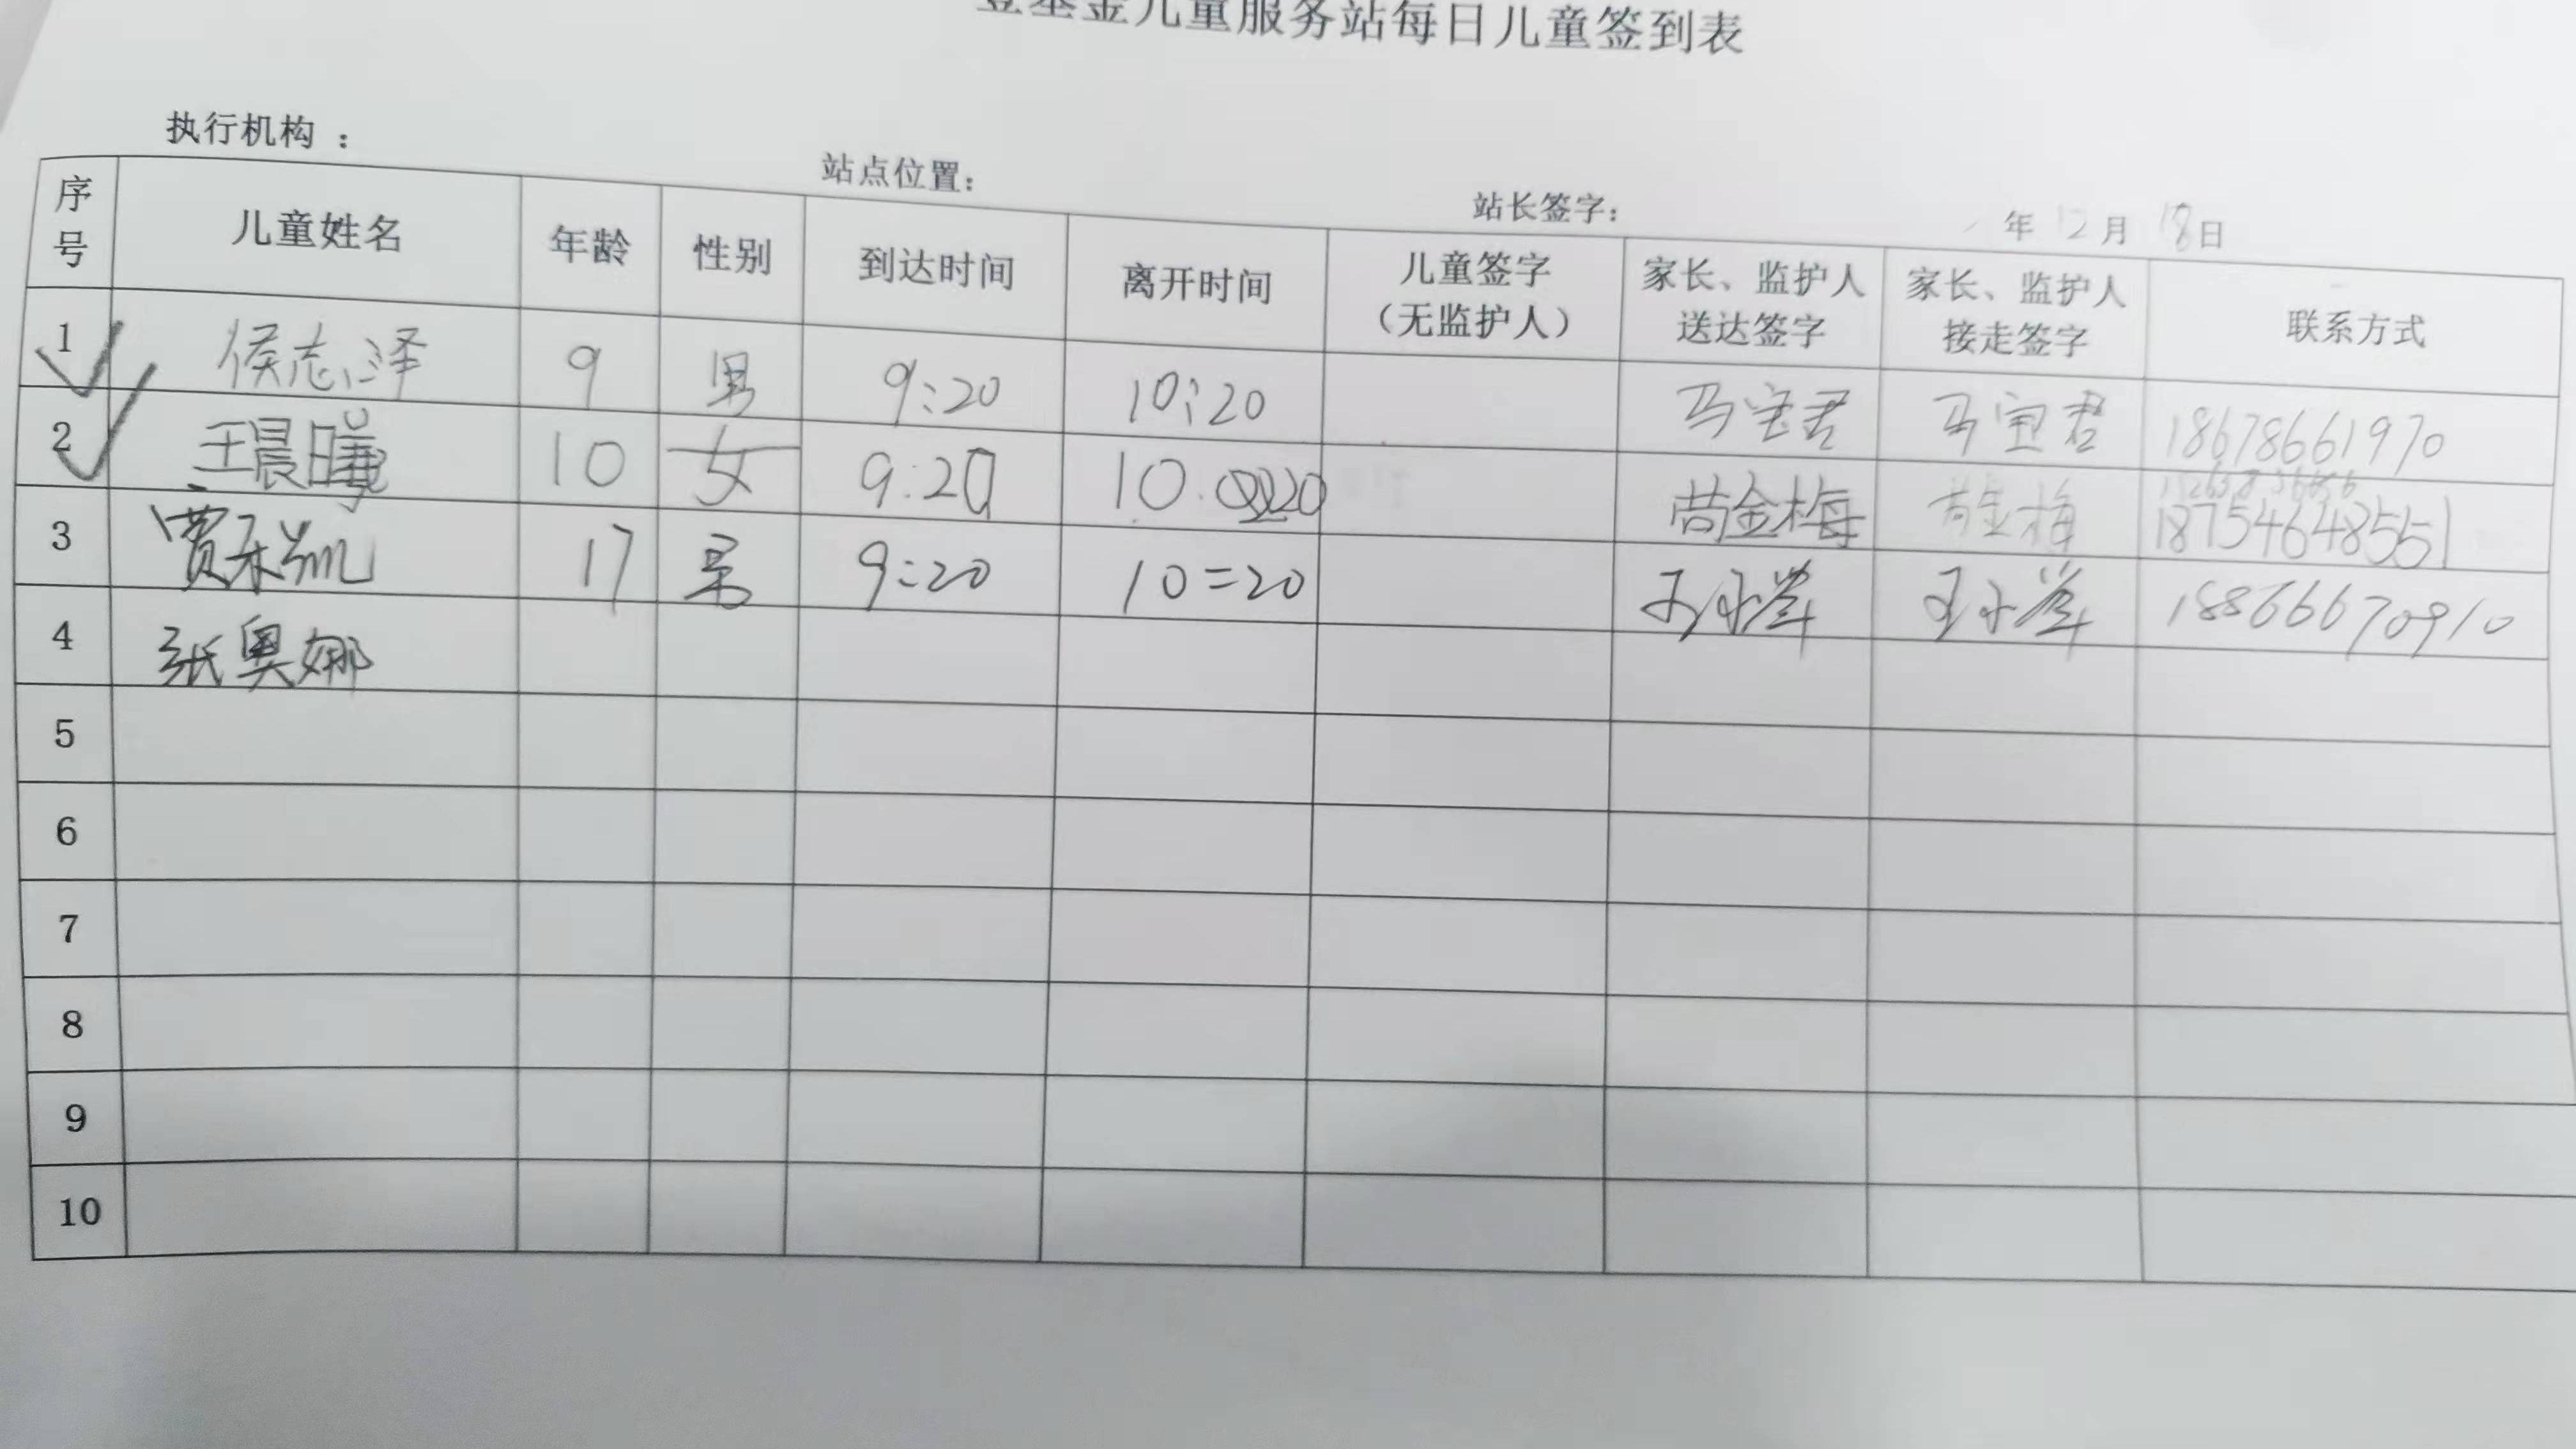 壹基金儿童服务站每日儿童签到表
执行机构 : 站点位置: 站长签字: 年 12 月 18 日
序号 儿童姓名 年龄 性别 到达时间 离开时间 儿童签字（无监护人） 家长、监护人送达签字 家长、监护人接走签字 联系方式
1 侯志泽 9 男 9:20 10:20 马宝君 马宝君 18678661970
2 王晨曦 10 女 9:20 10.20 苘金梅 苘金梅 18754648551
3 贾禾凯 17 男 9:20 10=20 18866670910
4 张奥娜
5
6
7
8
9
10